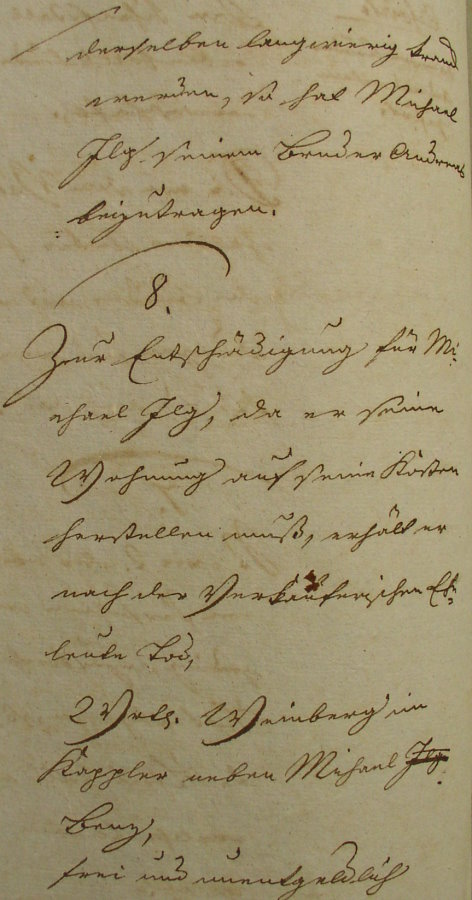 derselben langwierig krank
werden, so hat Michael
Ilg seinem Bruder Andreas
beizutragen.
8.
Zur Entschädigung für Mi-
chael Ilg, da er seine
Wohnung auf seine Kosten
herstellen muß, erhält er
nach der Verkäuferischen Ehe-
leute Tod,
2 Vrtl. Weinberg im
Kappler neben Michael Ilg
Benz,
frei und unentgeldlich